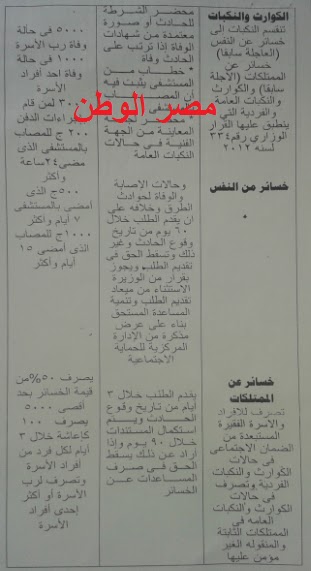 الكوارث والنكبات
تنقسم النكبات الى
خسائر عن النفس
(العاجلة سابقا)
خسائر عن
الممتلكات (الآجلة
سابقا) والكوارث
والنكبات العامة
والفردية التي
ينطبق عليها القرار
الوزاري رقم ٣٣٤
لسنه ٢٠١٢
محضر الشرطة
للحادث أو صورة
معتمدة من شهادات
الوفاة إذا ترتب على
الحادث وفاة
* خطاب من
المستشفى يثبت فيه
ان المصاب
مصر الوطن
المعاينة من الجهة
الفنية فى حالات
النكبات العامة
٥٠٠٠ فى حالة
وفاة رب الأسرة
١٠٠٠ فى حالة
وفاة احد افراد
الأسرة
٣٠٠ لمن قام
بإجراءات الدفن
٢٠٠ ج للمصاب
بالمستشفى الذى
مضى ٢٤ ساعة
٥٠٠ج الذى
أمضى بالمستشفى
٧ ايام وأكثر
١٠٠٠ج للمصاب
الذى أمضى ١٥
أيام وأكثر
خسائر من النفس
وحالات الاصابة
والوفاة لحوادث
الطرق وخلافه على
ان يقدم الطلب خلال
٦٠ يوم من تاريخ
وقوع الحادث وغير
ذلك وتسقط الحق فى
تقديم الطلب ويجوز
بقرار من الوزيرة
الاستثناء من ميعاد
تقديم الطلب وتنمية
المساعدة المستحق
بناء على عرض
مذكرة من الإدارة
المركزية للحماية
الاجتماعية
خسائر عن
الممتلكات
تصرف للأفراد
والاسرة الفقيرة
المستبعدة من
الضمان الاجتماعى
فى حالات
الكوارث والنكبات
الفردية وتصرف
فى حالات
الكوارث والنكبات
العامه فى
الممتلكات الثابتة
والمنقوله الغير
مؤمن عليها
يقدم الطلب خلال ٣
أيام من تاريخ وقوع
الحادث ويتم
استكمال المستندات
خلال ٩٠ يوم وإذا
اراد عن ذلك يسقط
الحق فى صرف
المساعدات عن
الخسائر
يصرف ٥٠%من
قيمة الخسائر بحد
أقصى ٥٠٠٠
يصرف ١٠٠
كإعاشة خلال ٣
أيام لكل فرد من
أفراد الأسرة
وتصرف لرب
الأسرة أو أكثر
إحدى أفراد
الأسرة